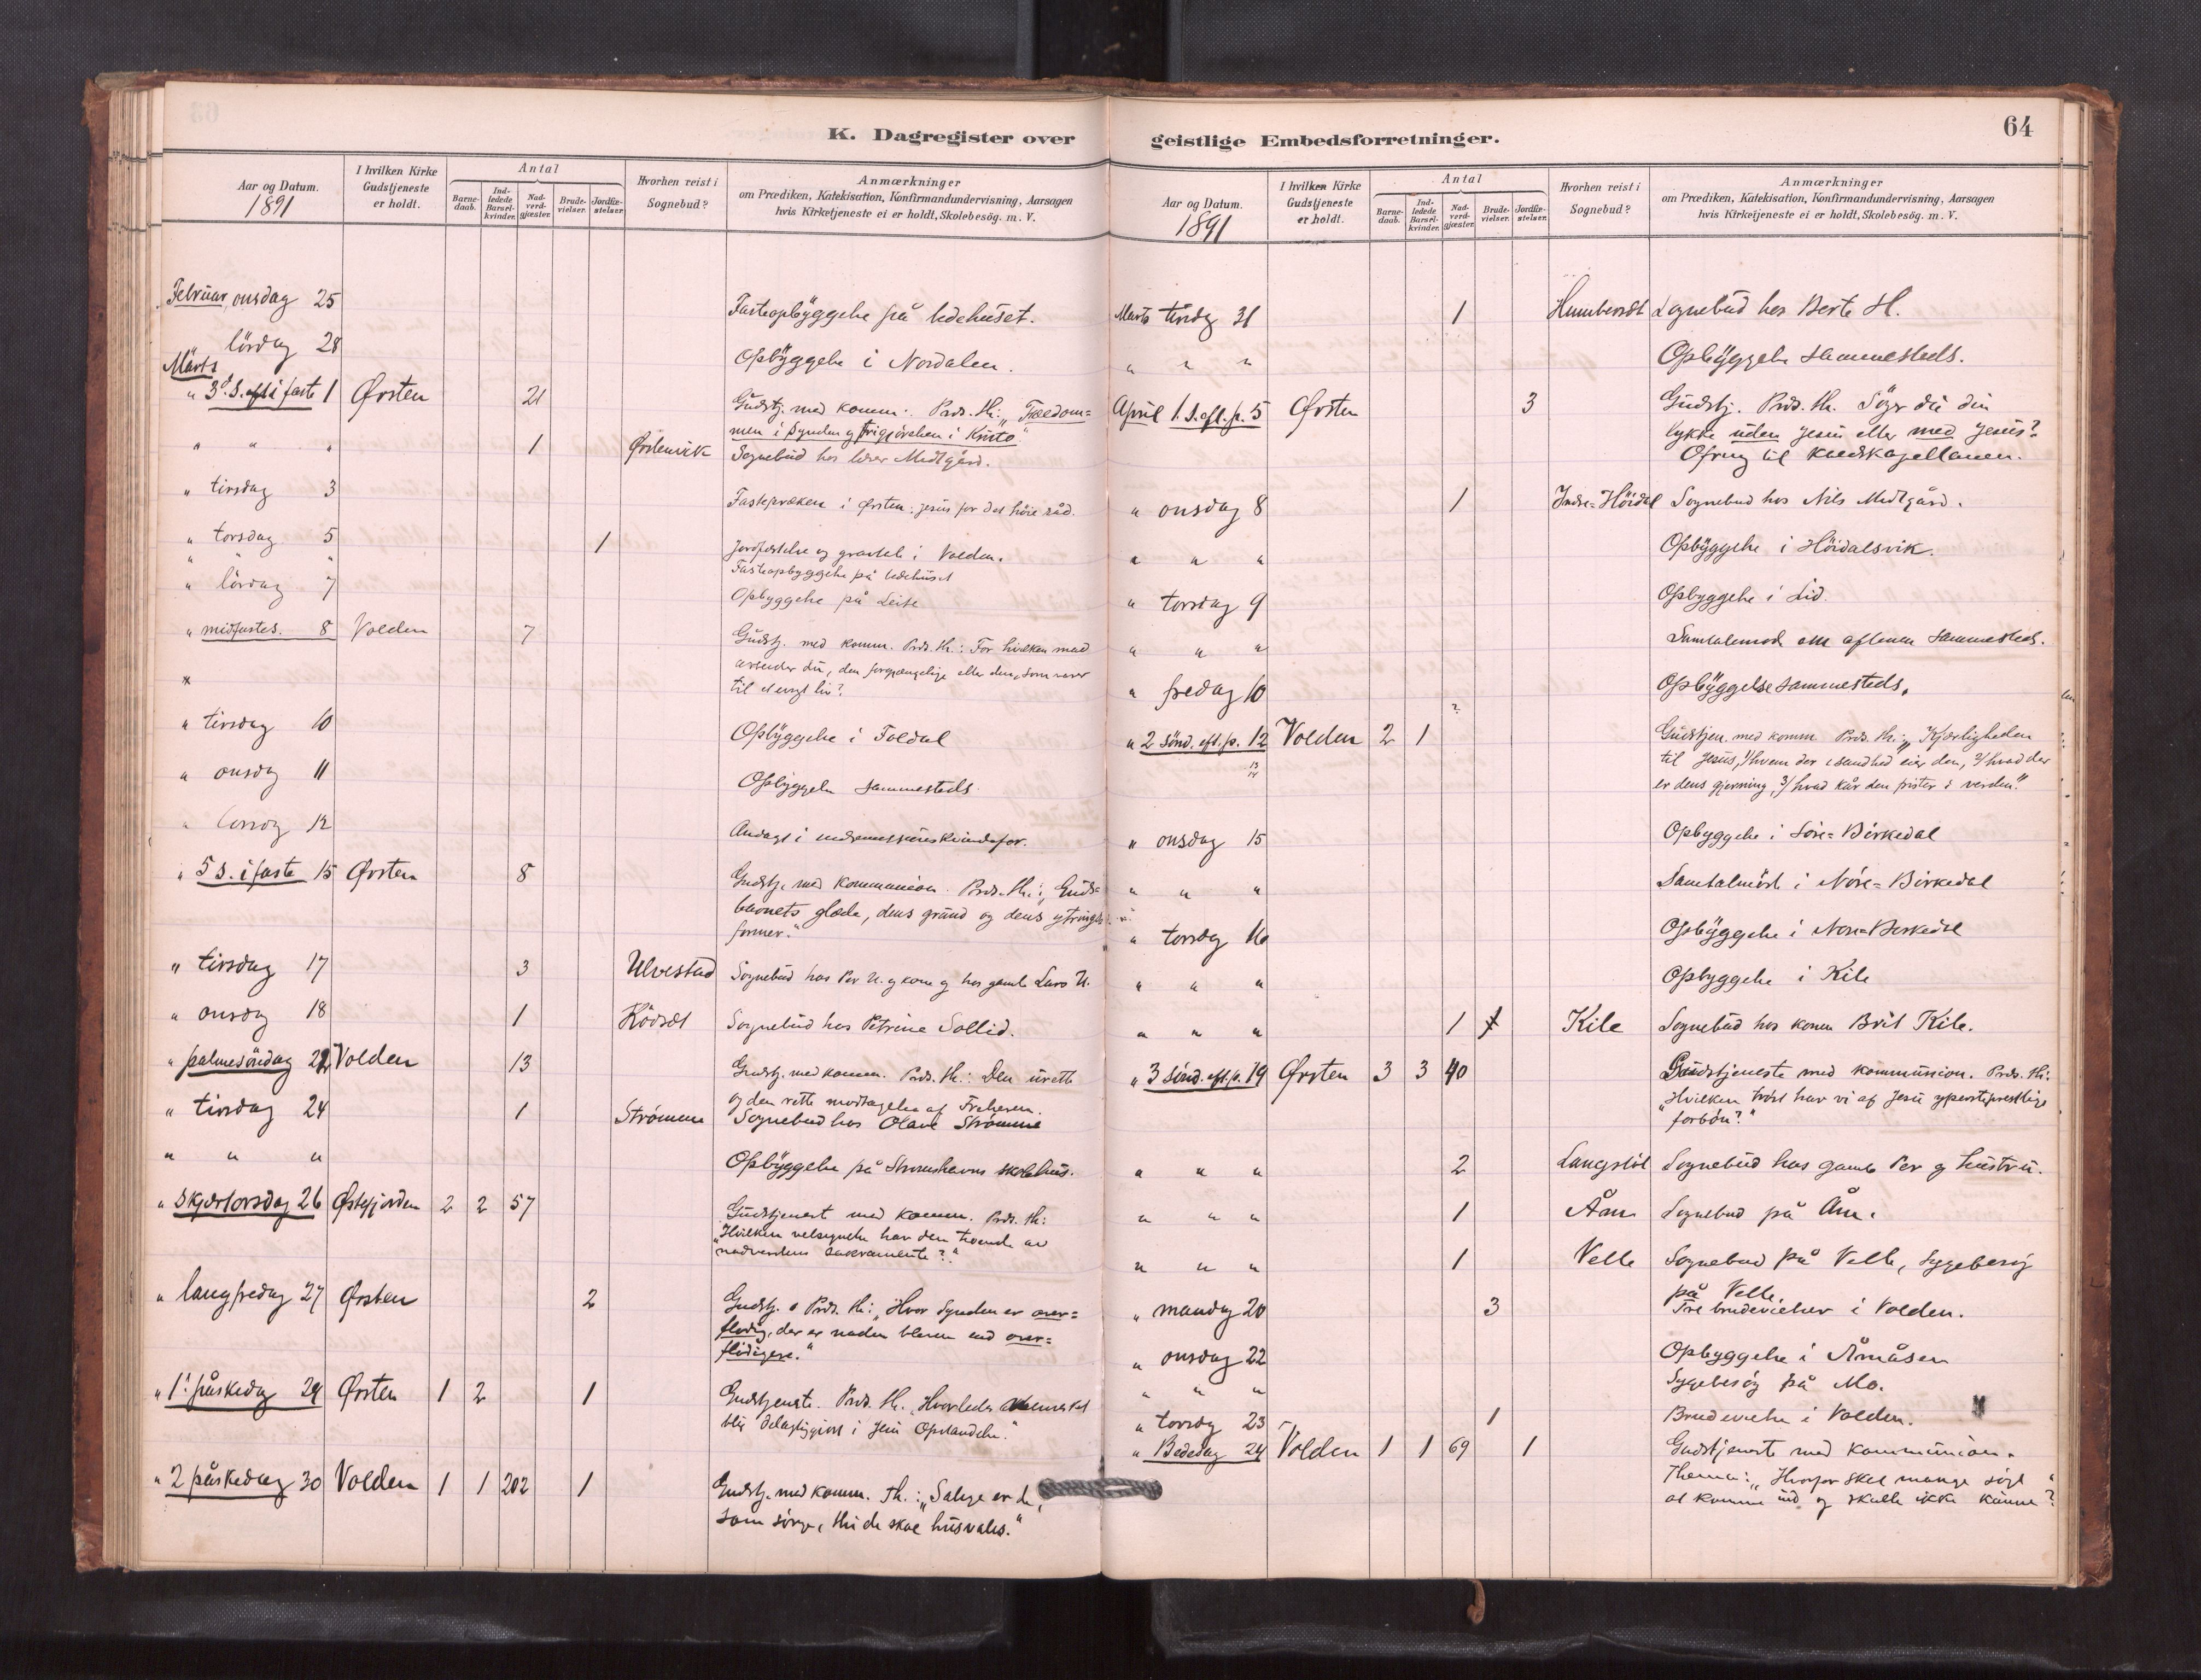 K. Dagregister over geistlige Embedsforretninger.
64
Aar og Datum.
1891
I hvilken Kirke Gudstjeneste er holdt.
Antal
Barne-daab.
Ind-ledede Barsel-kvinder.
Nad-verd-gjæster.
Brude-vielser.
Jordfæ-stelser.
Hvorhen reist i Sognebud?
Anmærkninger
om Prædiken, Katekisation, Konfirmandundervisning, Aarsagen
hvis Kirketjeneste ei er holdt, Skolebesög. m. V.
Februar, onsdag 25 Fasteopbyggelse på bedehuset.
" lördag 28 Opbyggelse i Nordalen.
Marts
" 3d. S. i faste 1 Ørsten 21 Gudstj. med komm. Præd. Th.: "Trældom=
men i Synden og frigjörelsen i Kristo"
" " " 1 Ørstenvik Sognebud hos lærer Medtgård.
" tirsdag 3 Fastepræken i Ørsten: Jesus for det höie råd.
" torsdag 5 1 Jordfæstelse og gravtale i Volden.
" " Fasteopbyggelse på bedehuset
" lördag 7 Opbyggelse på Leite
" midfastes. 8 Volden 7 Gudstj. med komm. Præd. Th.: For hvilken mad
arbeider du, den forgjængelige eller den, som varer
til et evigt liv?
" tirsdag 10 Opbyggelse i Foldal
" onsdag 11 Opbyggelse sammesteds
" torsdag 12 Andagt i indremissionskvindefor.
" 5 S. i faste 15 Ørsten 8 Gudstj. med kommunion. Præd. Th.: "Guds=
barnets glæde, dens grund og dens ytrings=
former."
" tirsdag 17 3 Ulvestad Sognebud hos Per U. og kone og hos gamle Lars U.
" onsdag 18 1 Rödsæt Sognebud hos Petrine Sollid.
" palmesöndag 22 Volden 13 Gudstj. med komm. Præd. Th.: Den urette
og den rette modtagelse af Frelseren.
" tirsdag 24 1 Strömme Sognebud hos Olave Strömme
" " " Opbyggelse på Strömshavns skolehus.
" Skjærtorsdag 26 Østefjorden 2 2 57 Gudstjenest med komm. Præd. Th:
"Hvilken velsignelse har den troende av
nadverdens sakramente?"
" langfredag 27 Ørsten 2 Gudstj. Præd. Th: "Hvor Synden er over=
flödig, der er naden bleven end over=
flödigere."
" 1. påskedag 29 Ørsten 1 2 1 Gudstjeneste. Præd. Th. "Hvorledes mennesket
blir delagtiggjort i Jesu Opstandelse."
" 2 påskedag 30 Volden 1 1 202 1 Gudstj. med komm. Th.: "Salige er de,
som sörge, thi de skal husvales."
Aar og Datum.
1891
I hvilken Kirke Gudstjeneste er holdt.
Antal
Barne-daab.
Ind-ledede Barsel-kvinder.
Nad-verd-gjæster.
Brude-vielser.
Jordfæ-stelser.
Hvorhen reist i Sognebud?
Anmærkninger
om Prædiken, Katekisation, Konfirmandundervisning, Aarsagen
hvis Kirketjeneste ei er holdt, Skolebesög. m. V.
Marts tirsdag 31 1 Sognebud hos Berte H.
" " " Opbyggelse sammesteds.
April 1. S. eft. p. 5 Ørsten 3 Gudstj. Præd. Th. Söger du din
lykke uden Jesus eller med Jesus?
Ofring til kaldskapellanen.
" onsdag 8 1 Indre=Höidal Sognebud hos Nils Medtgård.
" " " Opbyggelse i Höidalsvik.
" torsdag 9 Opbyggelse i Lid.
" " " Samtalemöde om aftenen sammesteds.
" fredag 10 Opbyggelse sammesteds.
" 2 sönd. eft. p. 12 Volden 2 1 ? Gudstjen. med komm. Præd. Th.: "Kjærligheden
til Jesus, 1/ hvem der i sandhed eier den, 2/ hvad der
er dens gjerning, 3/ hvad kår den frister i verden."
13
14
" onsdag 15 Opbyggelse i Söre=Birkedal
" " " Samtalemöde i Nöre=Birkedal
" torsdag 16 Opbyggelse i Nöre=Birkedal
" " " Opbyggelse i Kile
" " " 1 Kile Sognebud hos konen Brit Kile.
" 3 Sönd. eft. p. 19 Ørsten 3 3 40 Gudstjeneste med kommunion. Præd. Th:
"Hvilken tröst har vi af Jesu ypperstepræstlige
forbön?"
" " " 2 Langstöl Sognebud hos gamle Per og hustru.
" " " 1 Åm Sognebud på Åm.
" " " 1 Velle Sognebud på Velle, Sygebesög
på Velle.
" mandag 20 3 Tre brudevielser i Volden.
" onsdag 22 Opbyggelse i Åmåsen
" " " Sygebesög på Mo.
" torsdag 23 1 Brudevielse i Volden.
" Bededag 24 Volden 1 1 69 1 Gudstjeneste med kommunion.
Thema: "Hvorfor skal mange söge
at komme ind og skulle ikke kunne?"